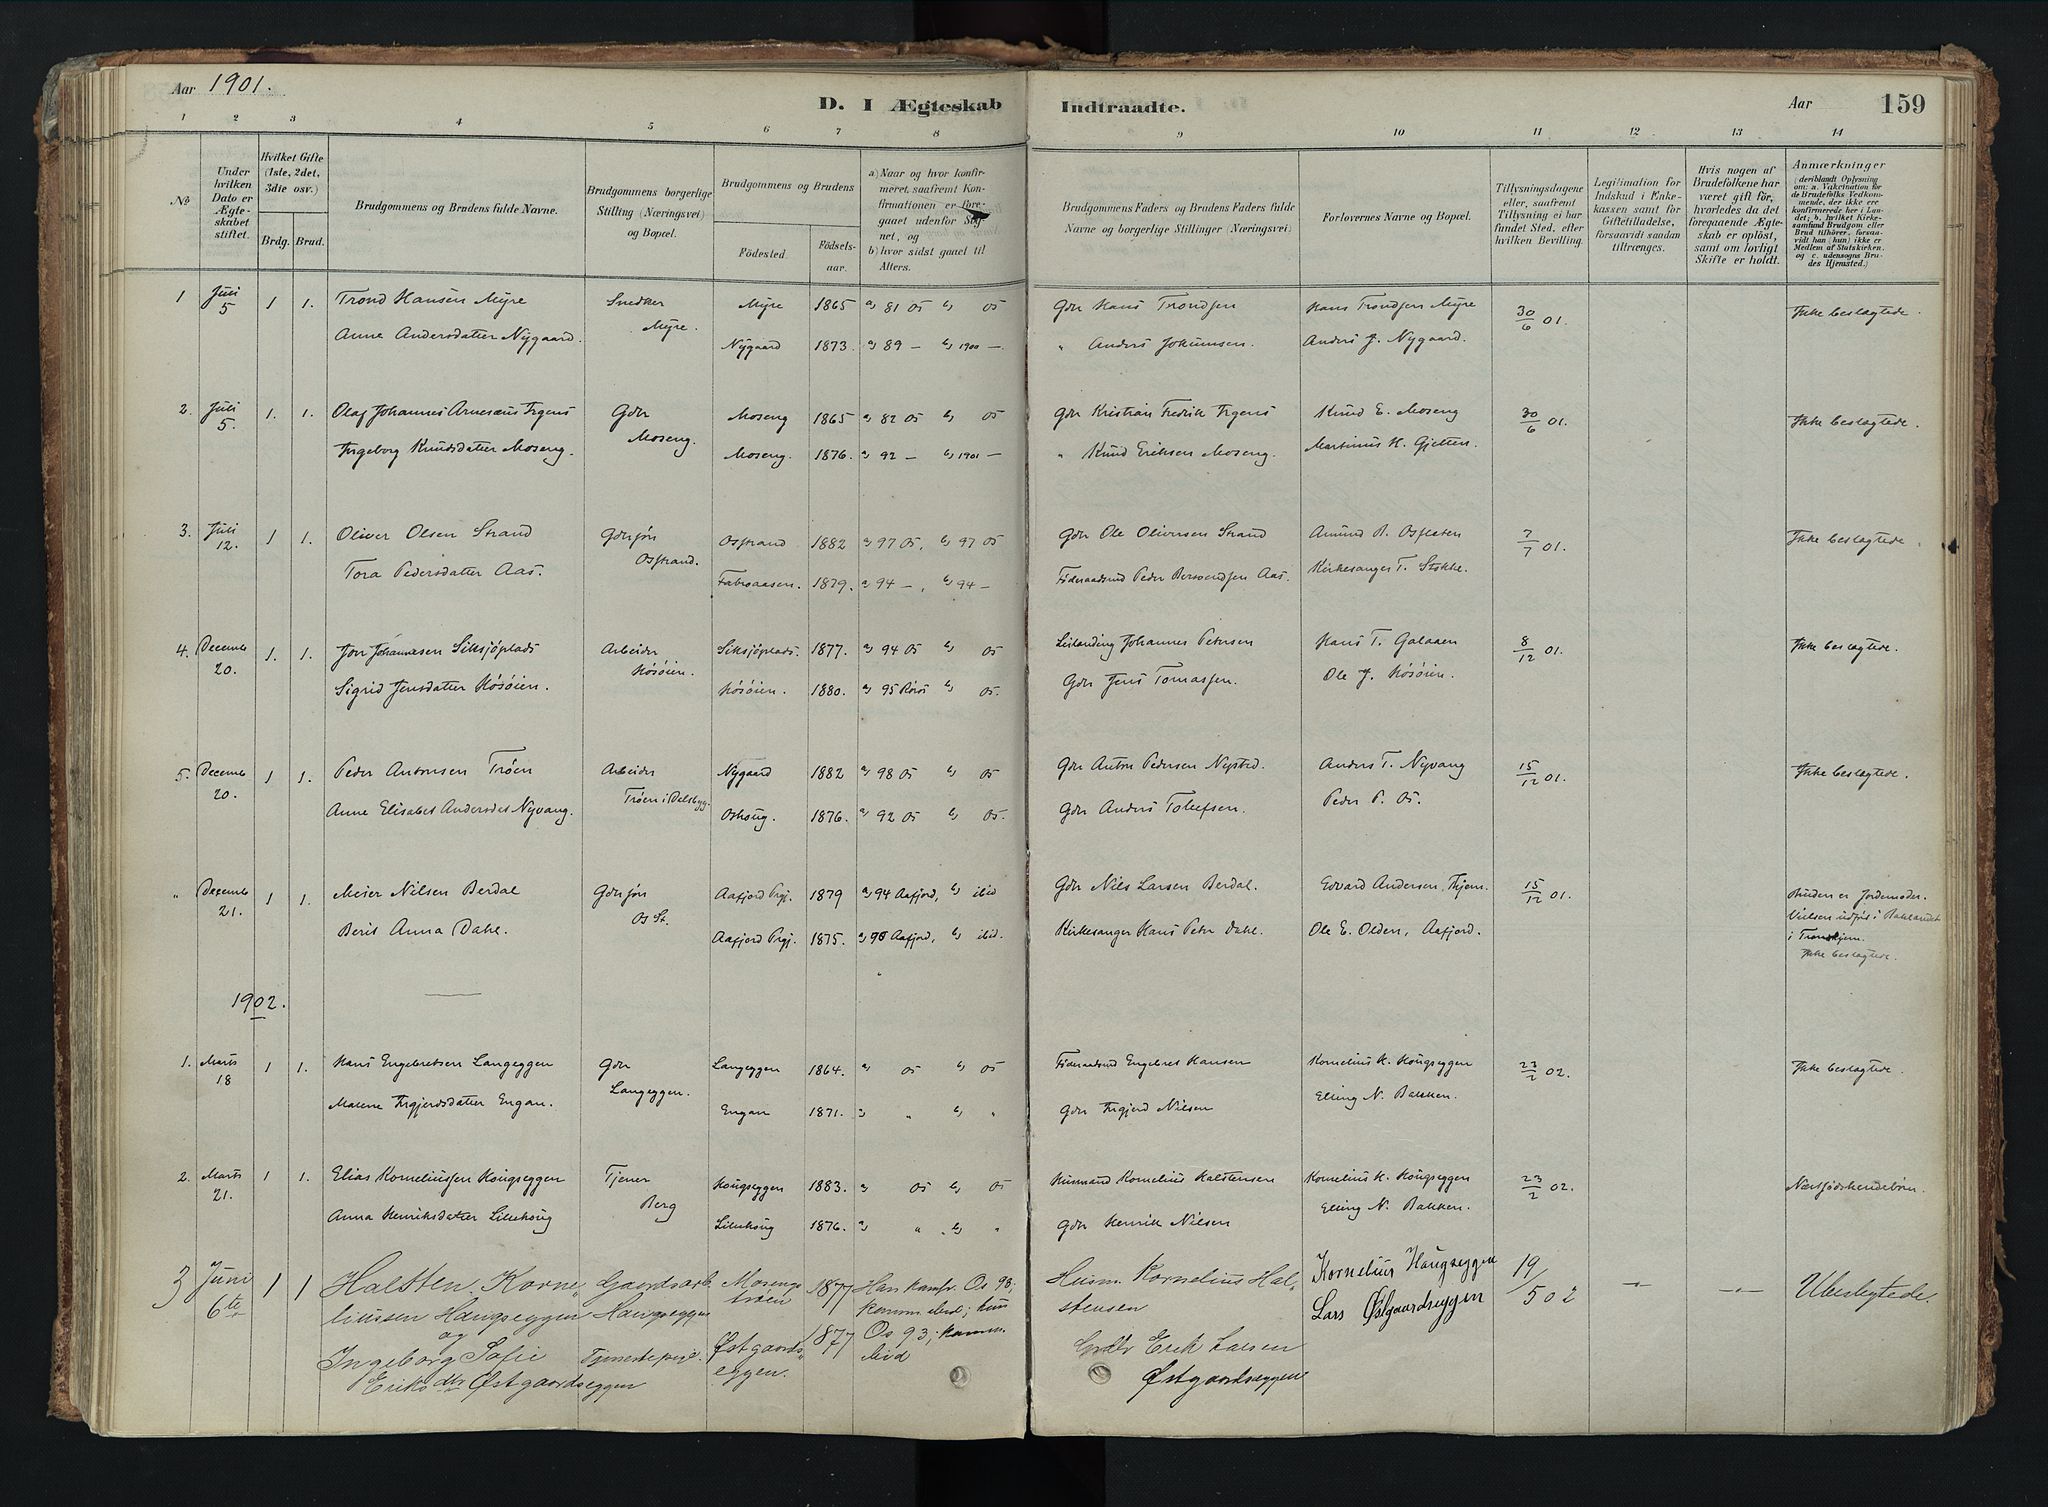 Aar 1901.
D. I Ægteskab Indtraadte. Aar 159
1 2 3 4 5 6 7 8 9 10 11 12 13 14
No
Under hvilken Dato er Ægteskabet stiftet.
Hvilket Gifte (1ste, 2det, 3die osv.)
Brdg. Brud.
Brudgommens og Brudens fulde Navne.
Brudgommens borgerlige Stilling (Næringsvei) og Bopæl.
Brudgommens og Brudens
Födested. Födselsaar.
a) Naar og hvor konfirmeret, saafremt Konfirmationen er foregaaet udenfor Sognet, og
b) hvor sidst gaaet til Alters.
Brudgommens Faders og Brudens Faders fulde Navne og borgerlige Stillinger (Næringsvei)
Forlovernes Navne og Bopæl.
Tillysningsdagene eller, saafremt Tillysning ei har fundet Sted, efter hvilken Bevilling.
Legitimation for Indskud i Enkekassen samt for Giftetilladelse, forsaavidt saadan tiltrænges.
Hvis nogen af Brudefolkene har været gift för, hvorledes da det foregaaende Ægteskab er oplöst, samt om lovligt Skifte er holdt.
Anmærkninger
(deriblandt Oplysning om: a. Vakcination for de Brudefolks Vedkommende, der ikke ere konfirmerede her i Landet; b. hvilket Kirkesamfund Brudgom eller Brud tilhörer, forsaavidt han (hun) ikke er Medlem af Statskirken, og c. udensogns Brudes Hjemsted.)
1 Juli 5 1 1. Trond Hansen Myre Snedker Myre 1865 a) 81 Os b) Os Gdr Hans Trondsen Hans Trondsen Myre 30/6 01. Ikke beslægtede.
Anne Andersdatter Nygaard. Myre. Nygaard 1873. a) 89 — b) 1900 — " Anders Johnnsen. Anders J. Nygaard.
2. Juli 5. 1. 1. Olaf Johannes Arnesæus Irgens Gdr Moseng 1865 a) 82 Os b) Os Gdr Kristian Fredrik Irgens Knud E. Moseng 30/6 01. Ikke beslægtede.
Ingeborg Knudsdatter Moseng. Moseng. Moseng. 1876. a) 92 — b) 1901 — " Knud Eriksen Moseng. Martinus H. Gjelten.
3. Juli 12. 1 1. Oliver Olsen Strand Gdrsøn Osstrand 1882 a) 97 Os, b) 97 Os Gdr Ole Oliversen Strand Amund R. Osflaten 7/7 01. Ikke beslægtede.
Tora Pedersdatter Aas. Osstrand. 1879. a) 94 —, b) 94 — Föderaadsmd Peder Bersvendsen Aas. Kirkesanger T. Stokke.
4. Decemb 20. 1. 1. Jon Johannesen Siksjöplads Arbeider Siksjöplads. 1877. a) 94 Os b) Os Leilænding Johannes Petersen Hans T. Galaaen 8/12 01. Ikke beslægtede.
Sigrid Jensdatter Kösöien. Kösöien. Kösöien. 1880. a) 95 Röros b) Os. Gdr Jens Tomassen. Ole J. Kösöien.
5. Decemb 20. 1 1. Peder Antonsen Tröen Arbeider Nygaard 1882 a) 98 Os b) Os Gdr Anton Pedersen Nysted. Anders T. Nyvang 15/12 01. Ikke beslægtede.
Anne Elisabet Andersdtr Nyvang. Tröen i Dalsbyg. Oshoug. 1876. a) 92 Os b) Os. Gdr Anders Tollefsen. Peder P. Os.
" Decemb 21. 1 1. Meier Nilsen Berdal Gdrsøn Aafjord Prgj. 1879 a) 94 Aafjord, b) ibid Gdr Nils Larsen Berdal. Edvard Andersen, Thjem. 15/12 01. Bruden er Jordemoder.
Berit Anna Dahl. Os St. Aafjord Prgj. 1875. a) 90 Aafjord, b) ibid. Kirkesanger Hans Peter Dahl. Ole E. Olden, Aafjord. Vielsen udført i Baklandet i Tronhjem. Ikke beslægtede.
1902.
1. Marts 18 1 1. Hans Engebretsen Langeggen Gdr Langeggen 1864. a) Os b) Os Föderaadsmd Engebret Hansen Kornelius H. Hougseggen 23/2 02. Ikke beslægtede.
Malene Ingjerdsdatter Engan. Langeggen. Engan 1871. a) " b) " Gdr Ingjerd Nilsen Elling N. Bakken.
2. Marts 21. 1 1. Elias Korneliussen Hougseggen Tjener Hougseggen 1883. a) Os b) Os Husmand Kornelius Halstensen Kornelius H. Hougseggen 23/2 02.
Anna Henriksdatter Lillehoug Berg Lillehoug 1876. a) " b) " Gdr Henrik Nilsen Elling N. Bakken.
3 Juni 6te 1 1 Halsten Korneliussen Haugseggen og Gaardsarb Haugseggen Mosengtröen 1877 Han konf. Os 93, komm. ibid; hun Husm. Kornelius Halstensen Kornelius Haugseggen 19/5 02 -"- -"- Ubeslegtede.
Ingeborg Sofie Eriksdtr Østgaardseggen Tjenestepige. Østgaardseggen. 1877 Os 93; komm. ibid Grdbr Erik Larsen Østgaardseggen Lars Østgaardseggen